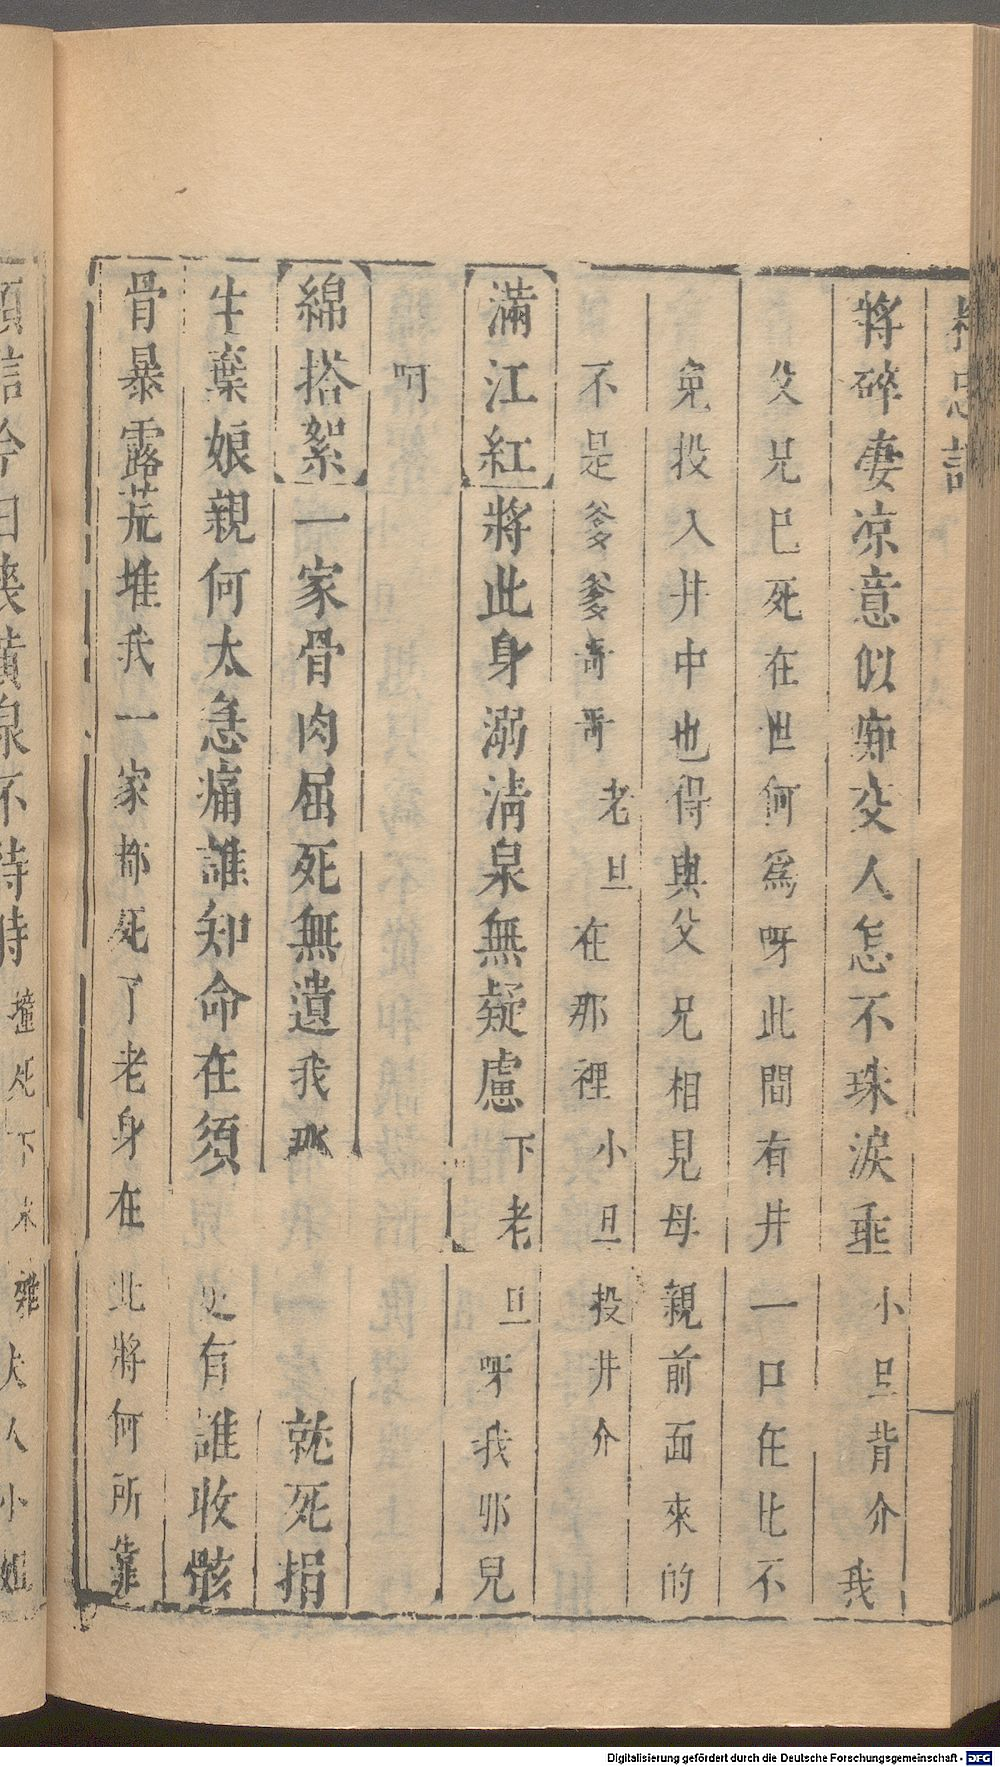 將碎妻凉意似痴交人怎不珠淚垂小旦背介我
父兄已死在世何爲呀此間有井一口在此不
免投入井中也得與父兄相見母親前面來的
不是爹爹哥哥老旦在那裡小旦投井介
滿江紅將此身溺清泉無疑慮下老旦呀我那兒
呵
綿搭絮一家骨肉屈死無遺我就死捐
生棄娘親何太急痛誰知命在須更有誰收骸
骨暴露荒堆我一家都死了老身在此將何所靠
今日 黃泉不待時撞死下末雜夫人小姐
Digitalisierung gefördert durch die Deutsche Forschungsgemeinschaft - DFG